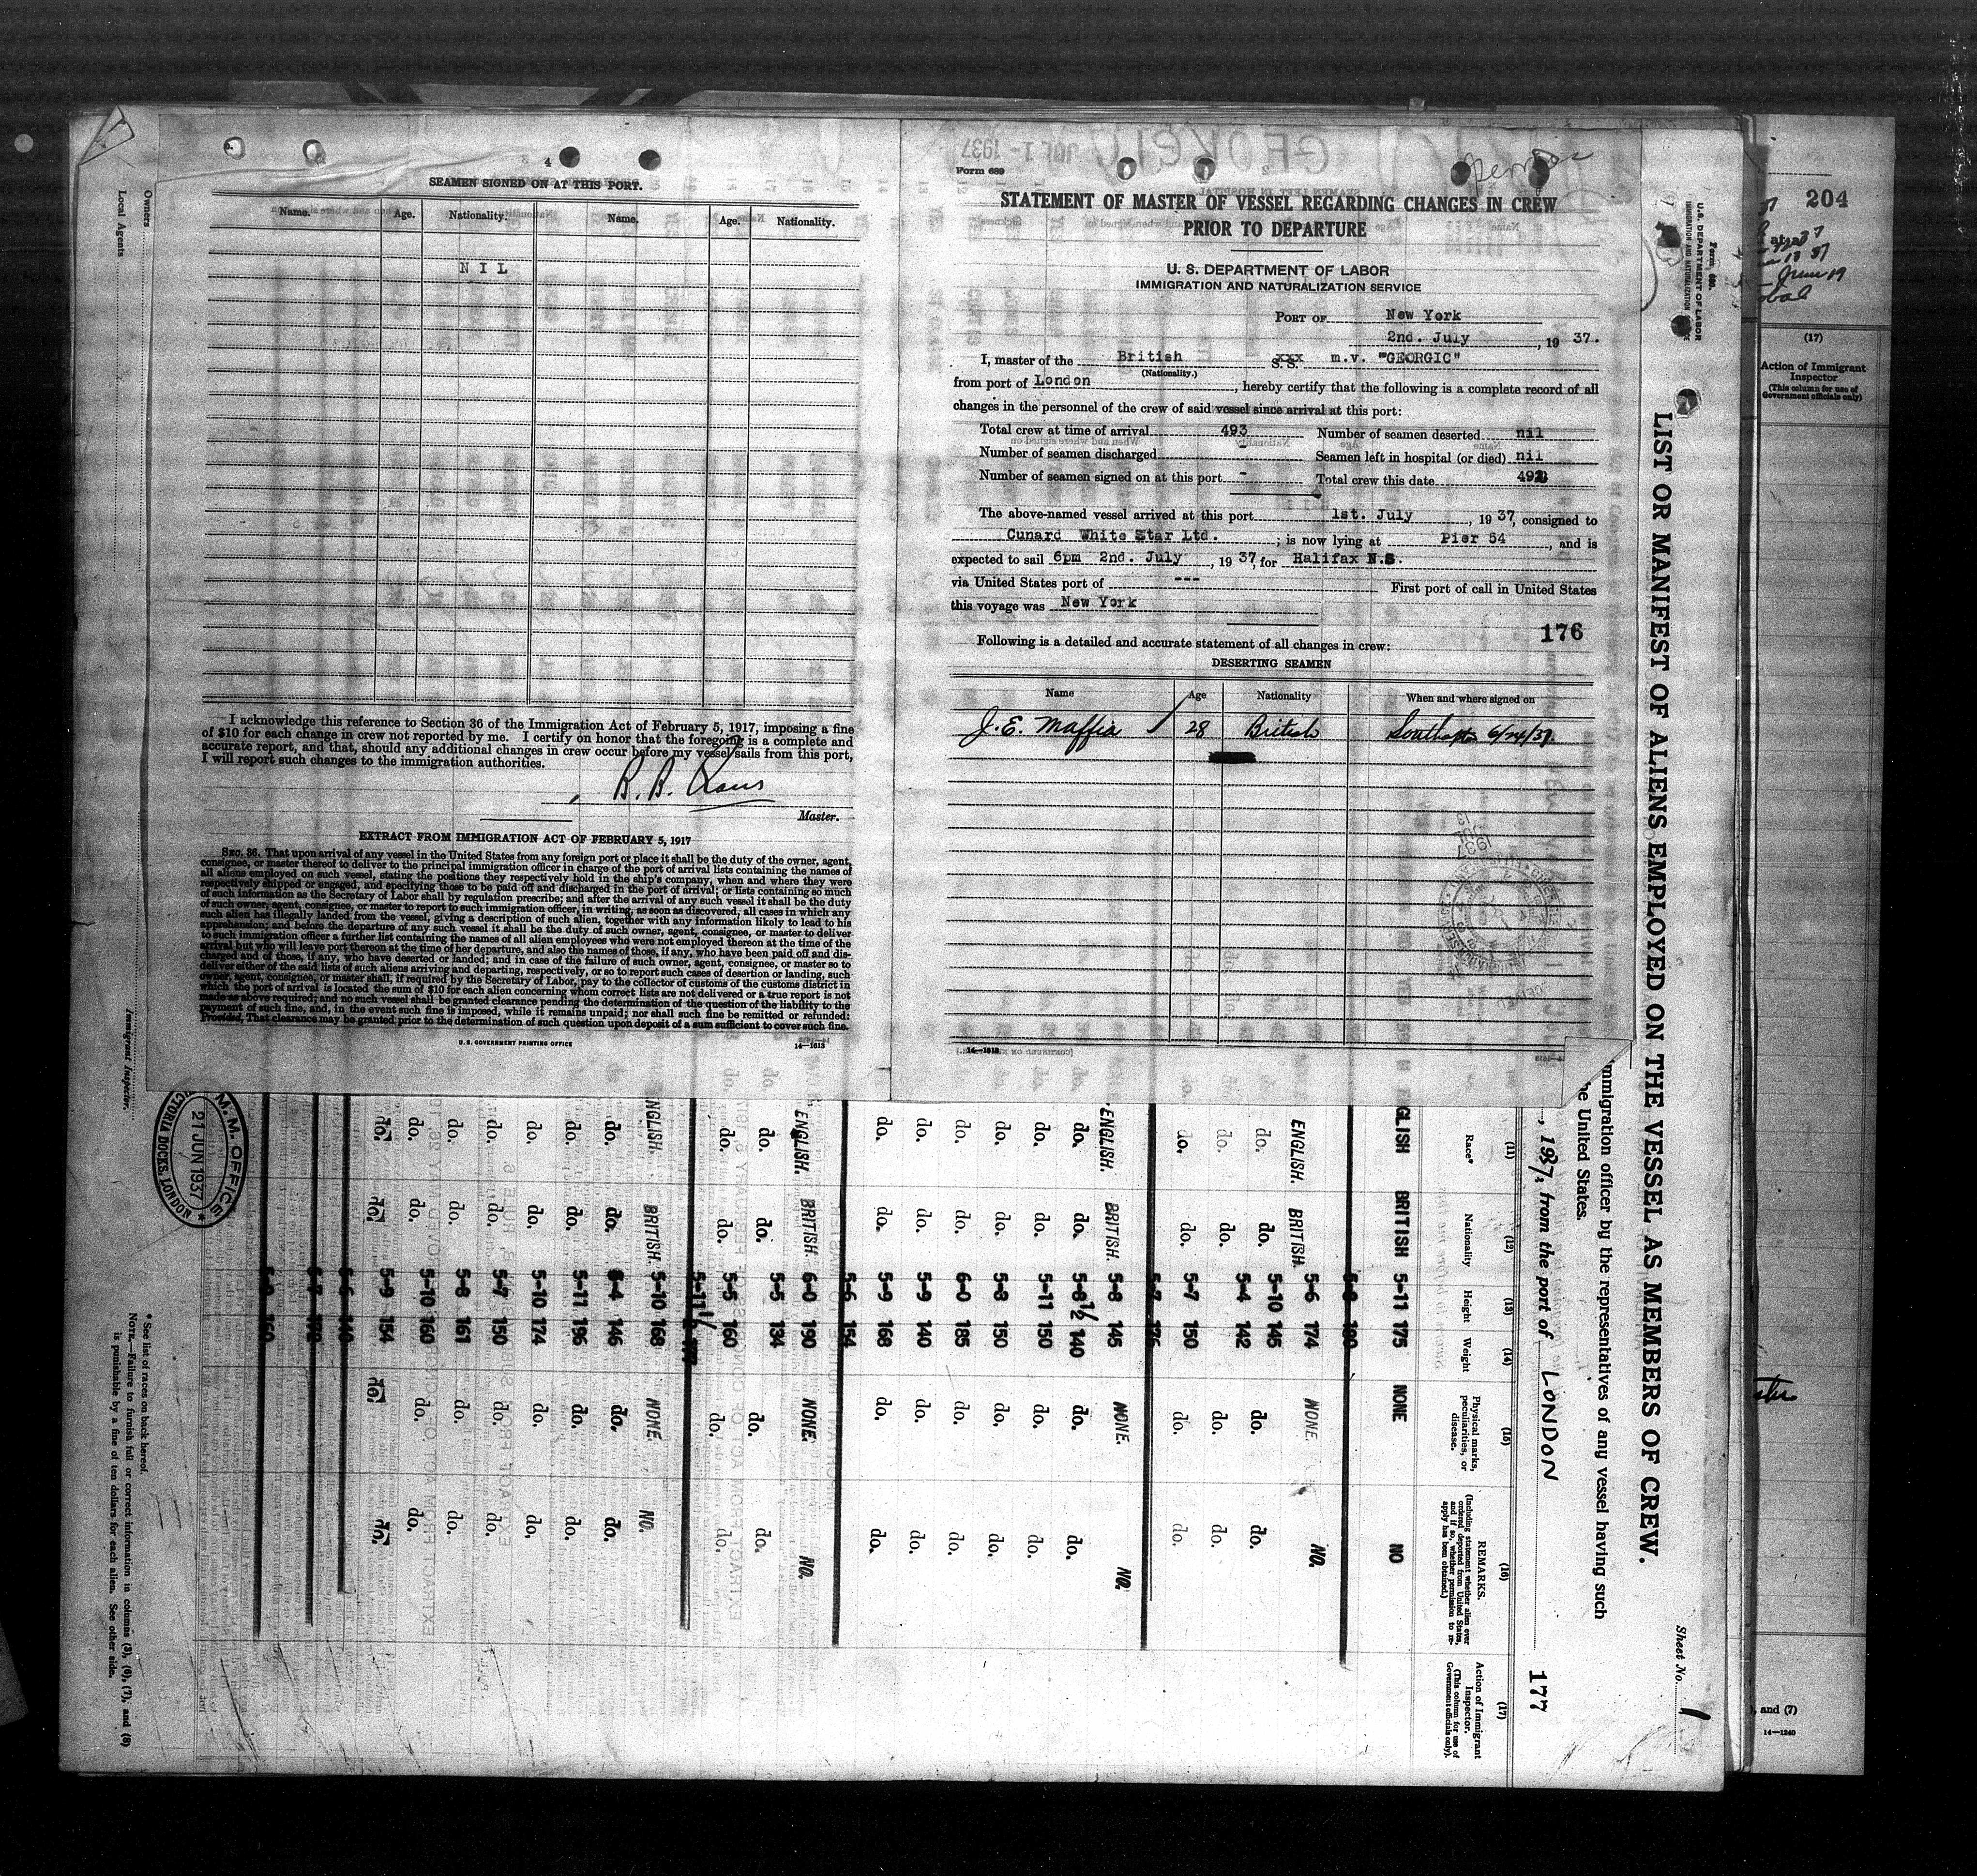 4
SEAMEN SIGNED ON AT THIS PORT.
Name. Age. Nationality. Name. Age. Nationality.
NIL
I acknowledge this reference to Section 36 of the Immigration Act of February 5, 1917, imposing a fine
of $10 for each change in crew not reported by me. I certify on honor that the foregoing is a complete and
accurate report, and that, should any additional changes in crew occur before my vessel sails from this port,
I will report such changes to the immigration authorities.
R. B.
Master.
EXTRACT FROM IMMIGRATION ACT OF FEBRUARY 5, 1917
SEC. 36. That upon arrival of any vessel in the United States from any foreign port or place it shall be the duty of the owner, agent,
consignee, or master thereof to deliver to the principal immigration officer in charge of the port of arrival lists containing the names of
all aliens employed on such vessel, stating the positions they respectively hold in the ship's company, when and where they were
respectively shipped or engaged, and specifying those to be paid off and discharged in the port of arrival; or lists containing so much
of such information as the Secretary of Labor shall by regulation prescribe; and after the arrival of any such vessel it shall be the duty
of such owner, agent, consignee, or master to report to such immigration officer, in writing, as soon as discovered, all cases in which any
such alien has illegally landed from the vessel, giving a description of such alien, together with any information likely to lead to his
apprehension; and before the departure of any such vessel it shall be the duty of such owner, agent, consignee, or master to deliver
to such immigration officer a further list containing the names of all alien employees who were not employed thereon at the time of the
arrival but who will leave port thereon at the time of her departure, and also the names of those, if any, who have been paid off and dis-
charged and of those, if any, who have deserted or landed; and in case of the failure of such owner, agent, consignee, or master so to
deliver either of the said lists of such aliens arriving and departing, respectively, or so to report such cases of desertion or landing, such
owner, agent, consignee, or master shall, if required by the Secretary of Labor, pay to the collector of customs of the customs district in
which the port of arrival is located the sum of $10 for each alien concerning whom correct lists are not delivered or a true report is not
made as above required; and no such vessel shall be granted clearance pending the determination of the question of the liability to the
payment of such fine, and, in the event such fine is imposed, while it remains unpaid; nor shall such fine be remitted or refunded:
Provided, That clearance may be granted prior to the determination of such question upon deposit of a sum sufficient to cover such fine.
U.S. GOVERNMENT PRINTING OFFICE 14—1613
Form 689
STATEMENT OF MASTER OF VESSEL REGARDING CHANGES IN CREW
PRIOR TO DEPARTURE
U. S. DEPARTMENT OF LABOR
IMMIGRATION AND NATURALIZATION SERVICE
PORT OF New York
2nd. July, 19 37.
I, master of the British S.S. xxx m.v. "GEORGIC"
(Nationality.)
from port of London, hereby certify that the following is a complete record of all
changes in the personnel of the crew of said vessel since arrival at this port:
Total crew at time of arrival 493 Number of seamen deserted nil
Number of seamen discharged - Seamen left in hospital (or died) nil
Number of seamen signed on at this port - Total crew this date 492
The above-named vessel arrived at this port 1st. July, 19 37, consigned to
Cunard White Star Ltd.; is now lying at Pier 54, and is
expected to sail 6pm 2nd. July, 19 37, for Halifax N.S.
via United States port of --- First port of call in United States
this voyage was New York
176
Following is a detailed and accurate statement of all changes in crew:
DESERTING SEAMEN
Name Age Nationality When and where signed on
J. E. Maffia 28 British 6/24/37
14—1613
Form 680.
U.S. DEPARTMENT OF LABOR
LIST OR MANIFEST OF ALIENS EMPLOYED ON THE VESSEL AS MEMBERS OF CREW.
Sheet No. 1
immigration officer by the representatives of any vessel having such
the United States.
, 1937, from the port of LONDON
177
(11) (12) (13) (14) (15) (16) (17)
Race* Nationality Height Weight Physical marks, peculiarities, or disease. REMARKS. Action of Immigrant Inspector.
(Including statement whether alien ever ordered deported from United States, and if so, whether permission to re-apply has been obtained.)
(This column for use of Government officials only).
ENGLISH BRITISH 5-11 175 NONE NO
5-8 180
ENGLISH. BRITISH. 5-6 174 NONE. NO.
do. do. 5-10 145 do. do.
do. do. 5-4 142 do. do.
do. do. 5-7 150 do. do.
5-7 176
ENGLISH. BRITISH. 5-8 145 NONE. NO.
do. do. 5-8½ 140 do. do.
do. do. 5-11 150 do. do.
do. do. 5-8 150 do. do.
do. do. 6-0 185 do. do.
do. do. 5-9 140 do. do.
do. do. 5-9 168 do. do.
5-6 154
ENGLISH. BRITISH. 6-0 190 NONE. NO.
do. do. 5-5 134 do. do.
do. do. 5-5 160 do. do.
5-11½
ENGLISH. BRITISH. 5-10 168 NONE. NO.
do. do. 146 do. do.
do. do. 5-11 196 do. do.
do. do. 5-10 174 do. do.
do. do. 5-7 150 do. do.
do. do. 5-8 161 do. do.
do. do. 5-10 160 do. do.
do. do. 5-9 154 do. do.
5-6 140
M.M. OFFICE
21 JUN 1937
VICTORIA DOCKS, LONDON
* See list of races on back hereof.
NOTE.—Failure to furnish full or correct information in columns (3), (6), (7), and (8)
is punishable by a fine of ten dollars for each alien. See other side.
Owners
Local Agents
Immigrant Inspector.
204
June 19
(17)
Action of Immigrant
Inspector
(This column for use of
Government officials only)
, and (7)
14—1240